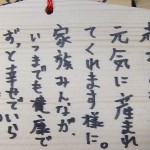 元気に産まれ
てくれます様に。
家族みんなが、
いつまでも健康で
ずっと幸せでいら